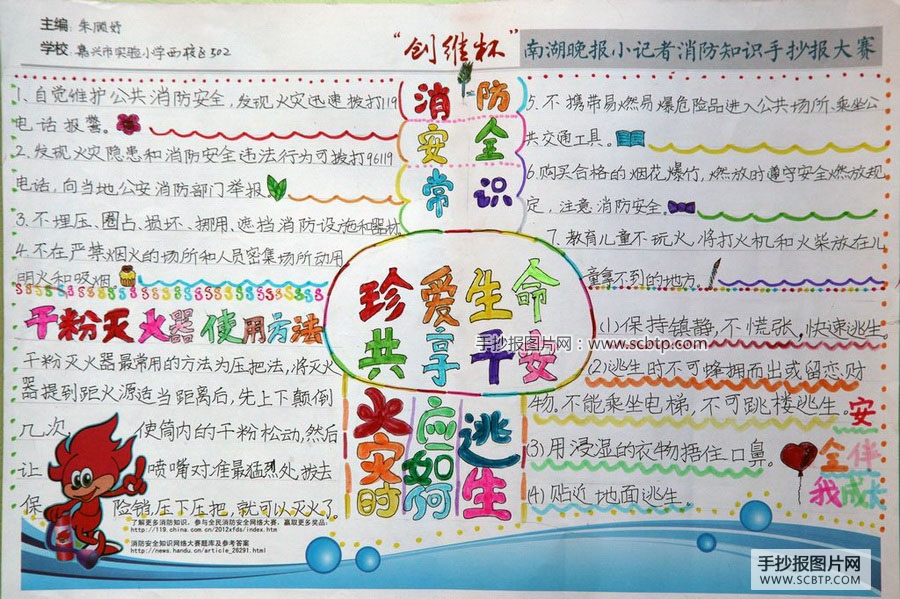 主编：朱顾妤
学校：嘉兴市实验小学西校区502
“创维杯”南湖晚报小记者消防知识手抄报大赛
消防
安全
常识
1、自觉维护公共消防安全，发现火灾迅速拨打119
电话报警。
2、发现火灾隐患和消防安全违法行为可拨打96119
电话，向当地公安消防部门举报
3、不埋压、圈占、损坏、挪用、遮挡消防设施和器材
4、不在严禁烟火的场所和人员密集场所动用
明火和吸烟。
5、不携带易燃易爆危险品进入公共场所、乘坐公
共交通工具。
6、购买合格的烟花爆竹，燃放时遵守安全燃放规
定，注意消防安全。
7、教育儿童不玩火，将打火机和火柴放在儿
童拿不到的地方。
珍爱生命
共享平安
手抄报图片网：www.scbtp.com
干粉灭火器使用方法
干粉灭火器最常用的方法为压把法，将灭火
器提到距火源适当距离后，先上下颠倒
几次，使筒内的干粉松动，然后
让喷嘴对准最猛烈处，拔去
保险销，压下压把，就可以灭火了。
火灾时
应如何
逃生
(1)保持镇静，不慌张，快速逃生。
(2)逃生时不可蜂拥而出或留恋财
物。不能乘坐电梯，不可跳楼逃生。
(3)用浸湿的衣物捂住口鼻。
(4)贴近地面逃生
安
全伴
我成长
了解更多消防知识，参与全民消防安全网络大赛，赢取更多奖品：
http://119.china.com.cn/2012xfds/index.htm
消防安全知识网络大赛题库及参考答案
http://news.handu.cn/article_28291.html
手抄报图片网
WWW.SCBTP.COM